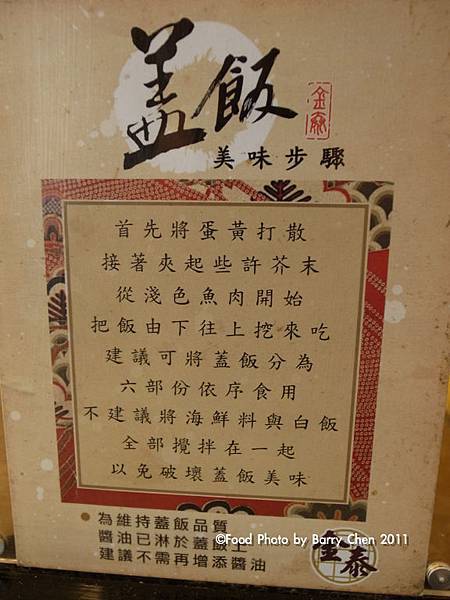 蓋飯
金泰
美味步驟
首先將蛋黃打散
接著夾起些許芥末
從淺色魚肉開始
把飯由下往上挖來吃
建議可將蓋飯分為
六部份依序食用
不建議將海鮮料與白飯
全部攪拌在一起
以免破壞蓋飯美味
為維持蓋飯品質
醬油已淋於蓋飯上
建議不需再增添醬油
金泰
©Food Photo by Barry Chen 2011